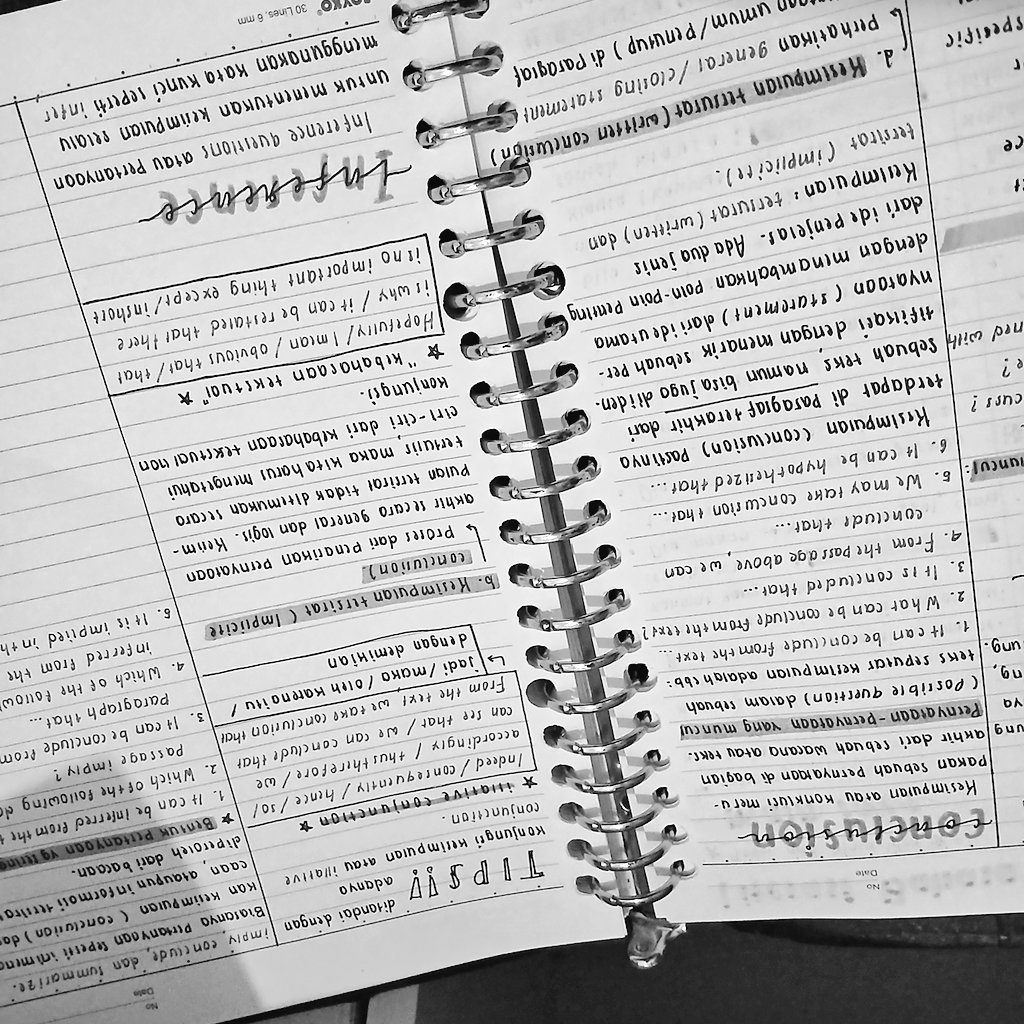 No
Date
Conclusion
Kesimpulan atau konklusi meru-
pakan sebuah Pernyataan di bagian
akhir dari sebuah wacana atau teks.
Pernyataan-pernyataan yang muncul
(Possible question) dalam sebuah
teks seputar kesimpulan adalah sbb:
1. It can be conclude from the text...
2. What can be conclude from the text?
3. It is concluded that...
4. From the passage above, we can
conclude that...
5. We may take conclusion that...
6. It can be hypothesized that...
Kesimpulan (conclusion) Pastinya
terdapat di Paragraf terakhir dari
sebuah teks, namun bisa juga diiden-
tifikasi dengan menarik sebuah Per-
nyataan (statement) dari ide utama
dengan menambahkan poin-poin Penting
dari ide penjelas. Ada dua jenis
Kesimpulan : tersurat (written) dan
tersirat (implicite).
a. Kesimpulan tersurat (written conclusion)
↳ Perhatikan general / closing statement
umum / Penutup) di Paragraf
TIPS!!
ditandai dengan
adanya
konjungsi kesimpulan atau illative
conjunction.
★ illative conjunction ★
Indeed / consequently / hence / so /
accordingly / thus therefore / we
can see that / we can conclude that
From the text, we take conclusion that
↳ Jadi / maka / oleh karena itu /
dengan demikian
b. Kesimpulan tersirat ( Implicite
conclusion)
↳ Proses dari Penarikan Pernyataan
akhir secara general dan logis. Kesim-
Pulan tersirat tidak dirumuskan secara
tertulis, maka kita harus mengetahui
ciri-ciri dari kebahasaan tekstual non
konjungsi.
★ "kebahasaan tekstual" ★
Hopefully / I mean / obvious that / that
is why / it can be restated that there
is no important thing except / inshort
Inference
Inference questions atau Pertanyaan
untuk menentukan kesimpulan selalu
menggunakan kata kunci seperti infer
30 Lines, 6 mm
No
Date
imply conclude, dan summarize.
Biasanya pertanyaan seperti ini
kan kesimpulan ( conclusion)
caan ataupun informasi tersirat
diperoleh dari bacaan.
★ Bentuk pertanyaan yg sering
1. It can be Inferred from the
2. Which of the following
Passage imply?
3. It can be conclude from
Paragraph that...
4. Which of the
inferred from the
6. It is implied in th